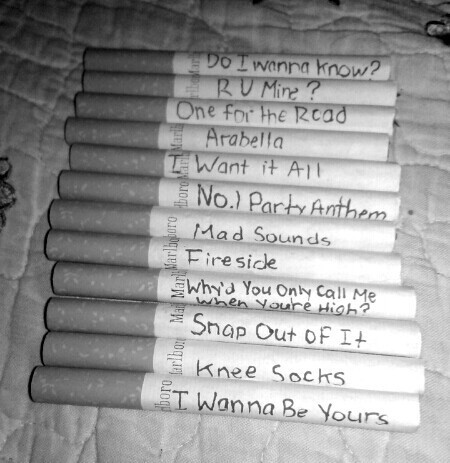 Do I wanna Know?
R U Mine?
One for the Road
Arabella
I Want it All
No.1 Party Anthem
Mad Sounds
Fireside
Why'd You Only Call Me
When You're High?
Snap Out Of It
Knee Socks
I Wanna Be Yours